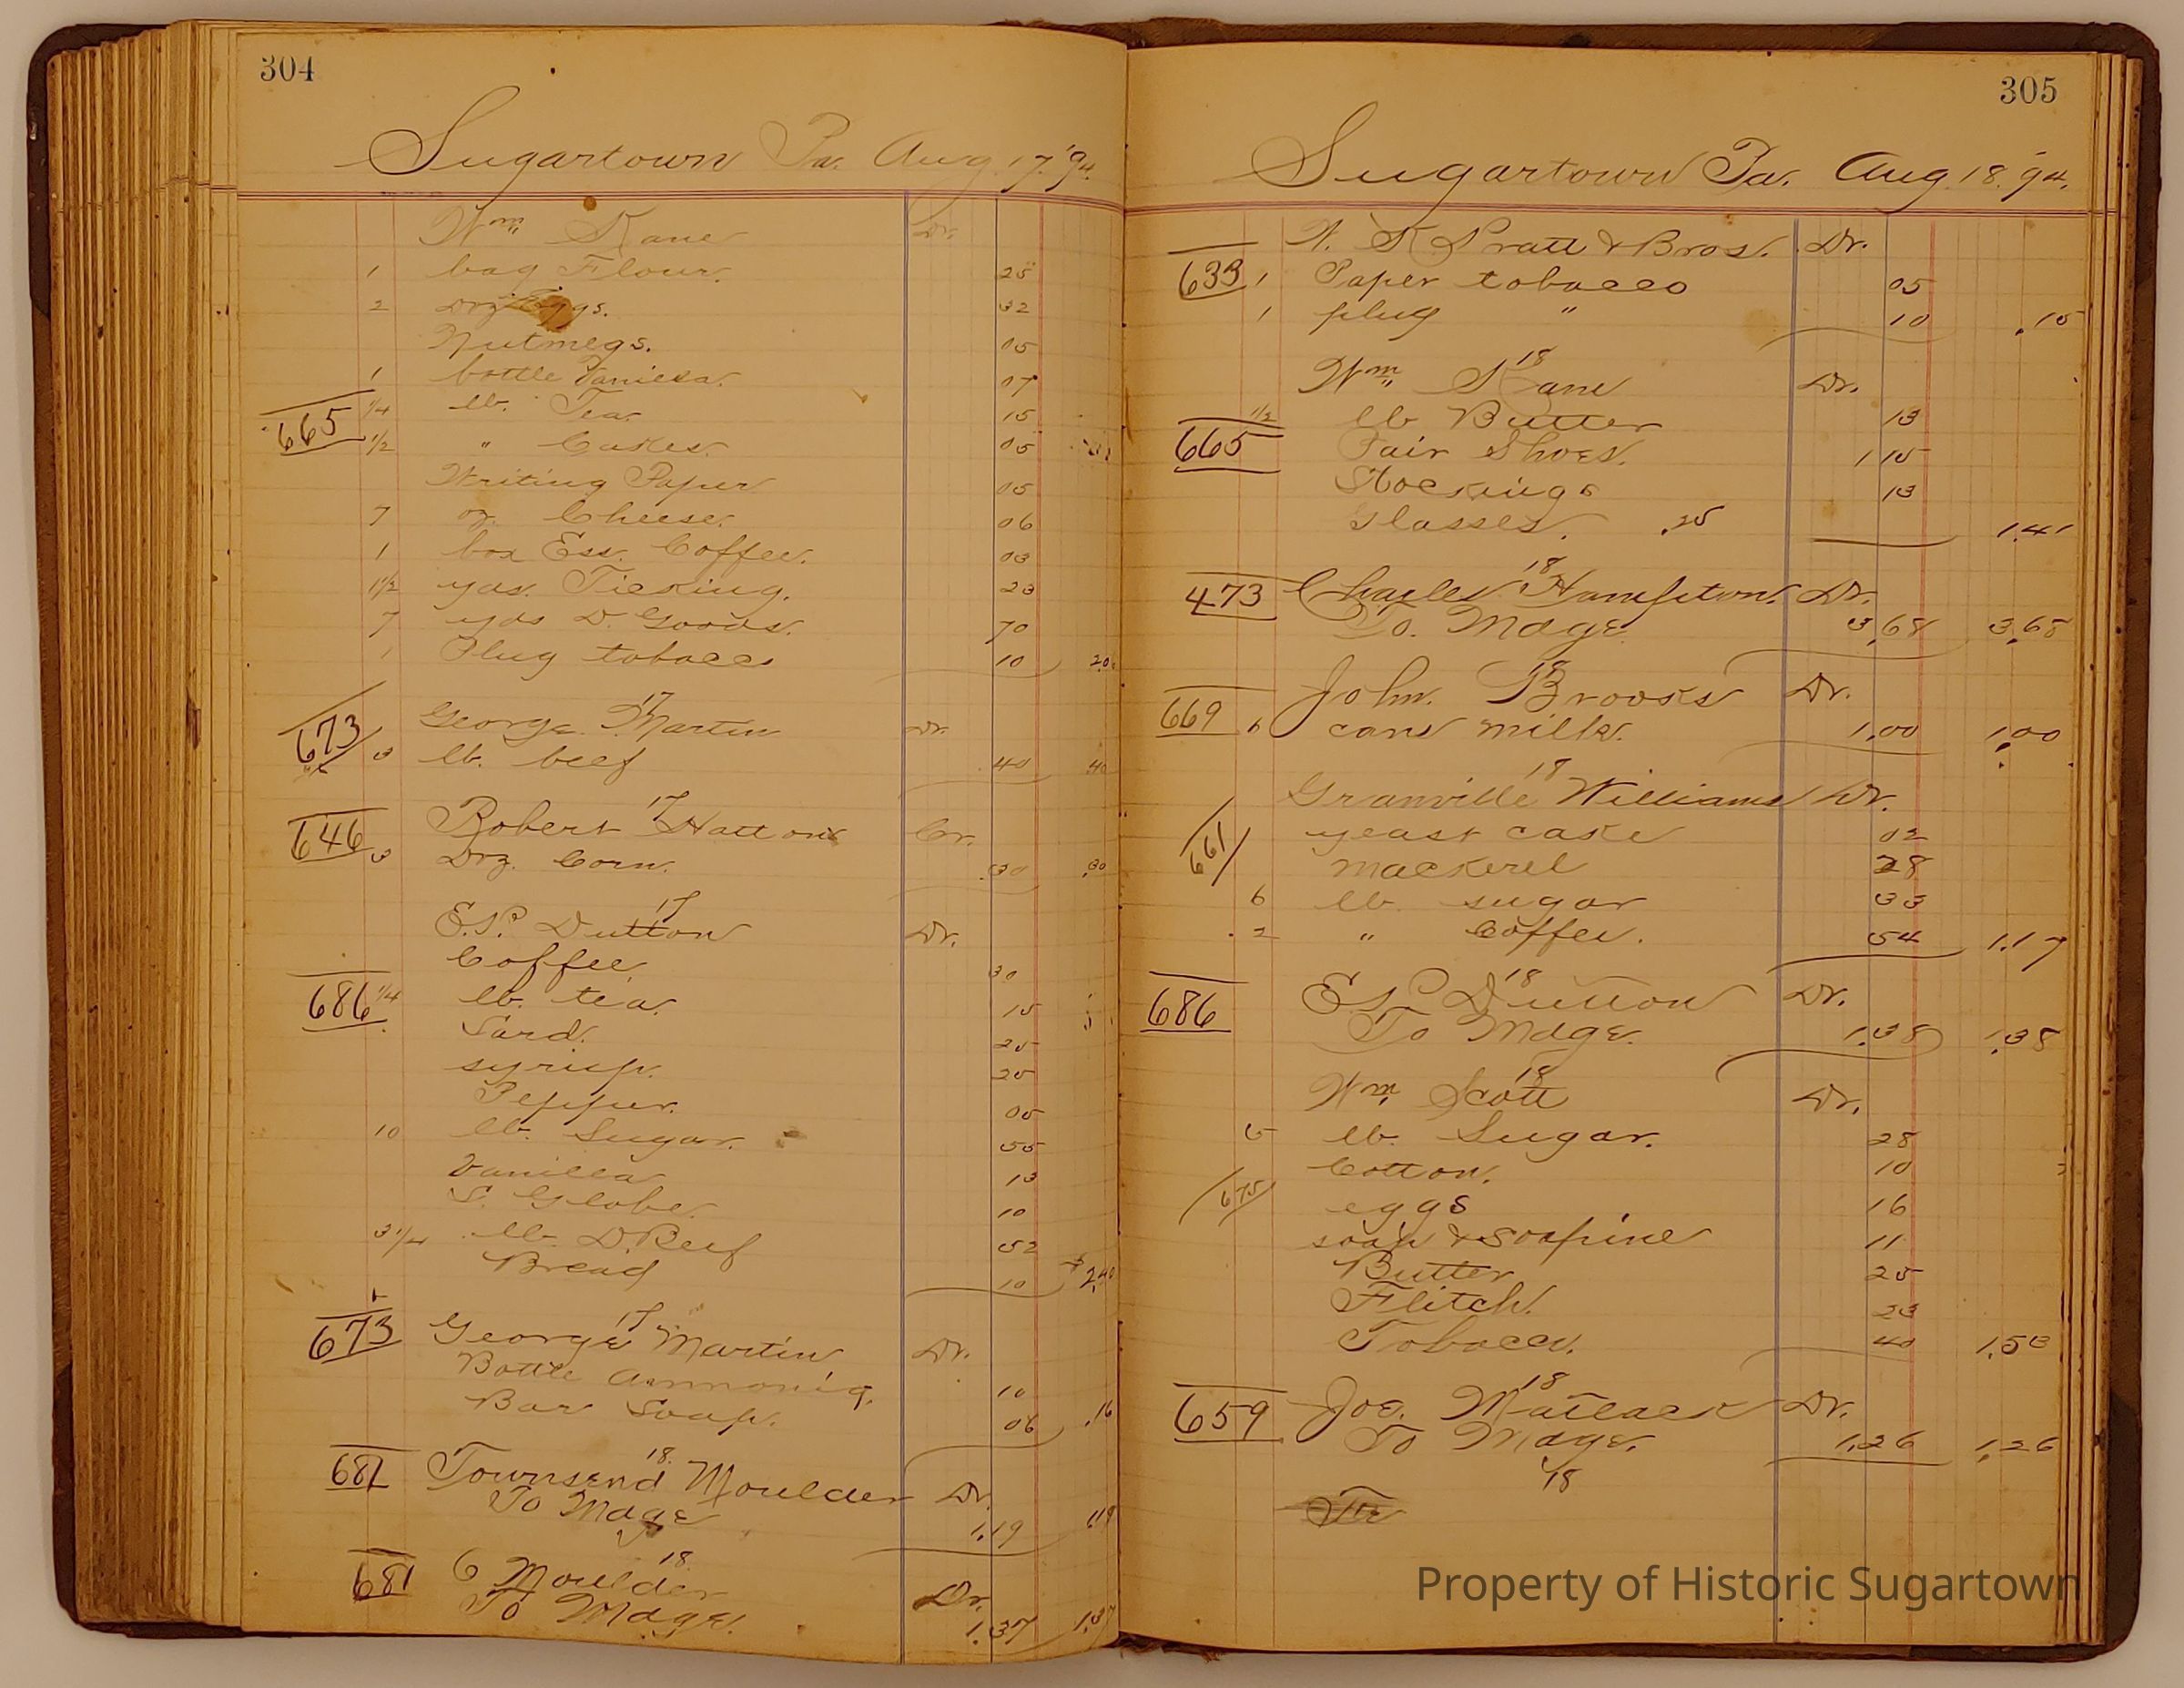 304
Sugartown Pa. Aug. 17. '94.
Wm Kane Dr.
1 bag Flour. 25
2 Doz Eggs. 32
Nutmegs. 05
1 bottle Vanilla. 07
665 1/4 lb. Tea. 15
1/2 " Cakes. 05
Writing Paper 05
7 oz. Cheese. 06
1 box Ess. Coffee. 03
1 1/2 yds. Ticking. 23
7 yds D. Goods. 70
1 Plug tobacco 10
17
673 George Martin Dr.
3 lb. beef 40 40
17
646 Robert Hatton Cr.
3 Doz. Corn. .30 .30
17
E.P. Dutton Dr.
Coffee, 30
686 1/4 lb. tea. 15
Lard. 25
syrup. 25
Pepper. 05
10 lb. Sugar. 55
Vanilla 13
L. Globe. 10
3 1/4 lb. D. Beef 52
Bread 10 2.40
17
673 George Martin Dr.
Bottle Ammonia. 10
Bar Soap. 06 .16
18.
681 Townsend Moulder Dr.
To Mdge 1.19 1.19
18.
681 C Moulder Dr.
To Mdge. 1.37 1.37
305
Sugartown Pa. Aug. 18. '94.
K Pratt & Bros. Dr.
633 1 Paper tobacco 05
1 plug " 10 .15
18
Wm Kane Dr.
1/2 lb Butter 13
665 Pair Shoes. 1 15
Stockings 13
Glasses. .25 1.41
18
473 Charles Hampton. Dr.
To. Mdge 3.68 3.68
18
John. Brooks Dr.
669 6 cans milk. 1.00 1.00
18
Granville Williams Dr.
661 yeast cake 02
mackerel 28
6 lb. sugar 33
2 " Coffee. 54 1.17
18
686 E P Dutton Dr.
To Mdge. 1.38 1.38
18
Wm. Scott Dr.
5 lb. Sugar. 28
Cotton. 10
675 eggs 16
soap & soapine 11
Butter 25
Flitch. 23
Tobacco. 40 1.53
18
659 Joe. Matlack Dr.
To Mdge. 1.26 1.26
18
Property of Historic Sugartown